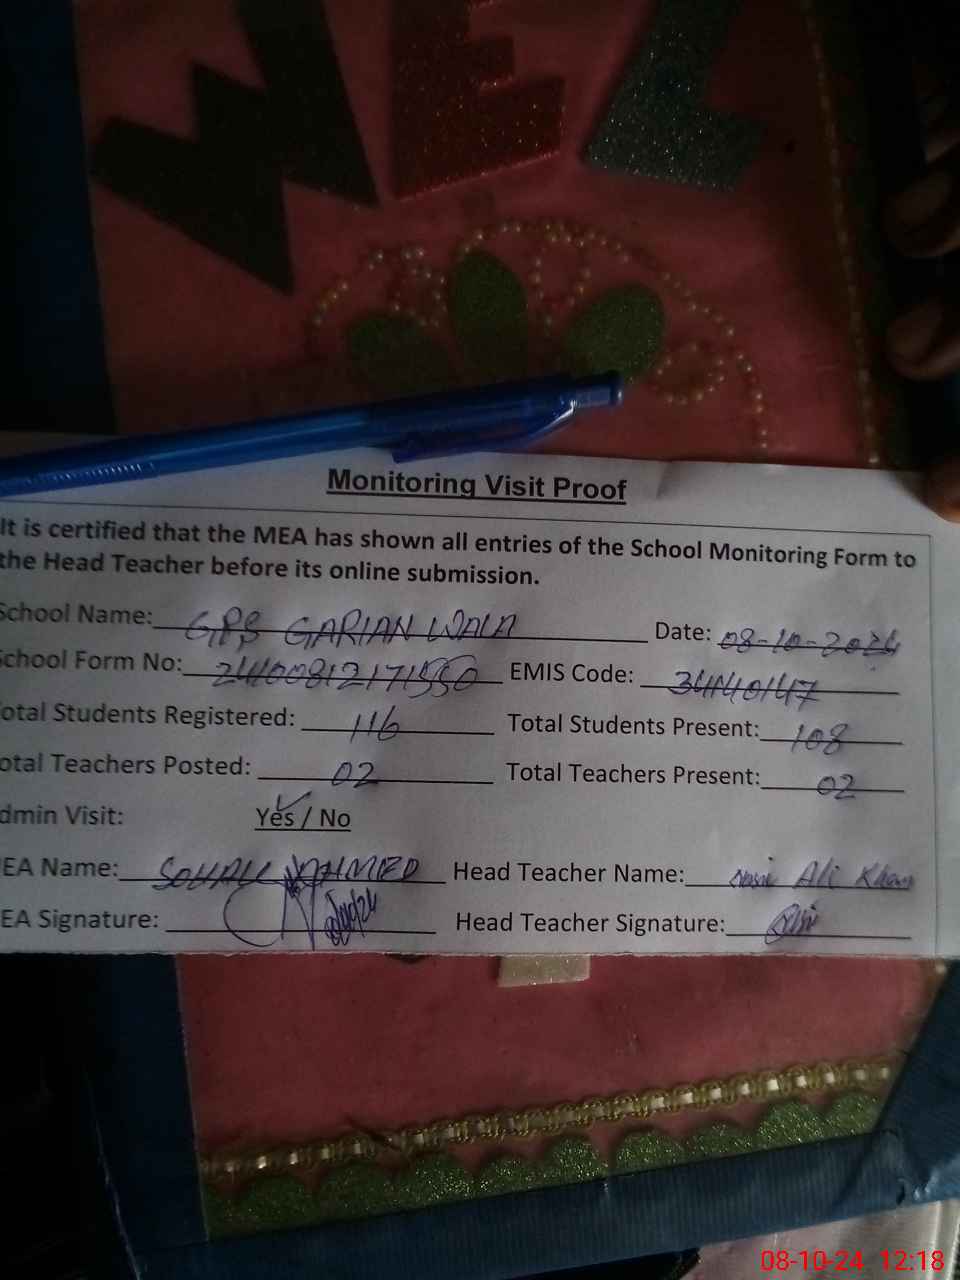 WEL
Monitoring Visit Proof
It is certified that the MEA has shown all entries of the School Monitoring Form to
the Head Teacher before its online submission.
School Name: GPS GARIAN WALA Date: 08-10-2024
School Form No: EMIS Code: 34140147
otal Students Registered: 116 Total Students Present: 108
otal Teachers Posted: 02 Total Teachers Present: 02
dmin Visit: Yes / No
EA Name: SOHAIL AHMED Head Teacher Name: Ali Khan
EA Signature: Head Teacher Signature:
08-10-24 12:18